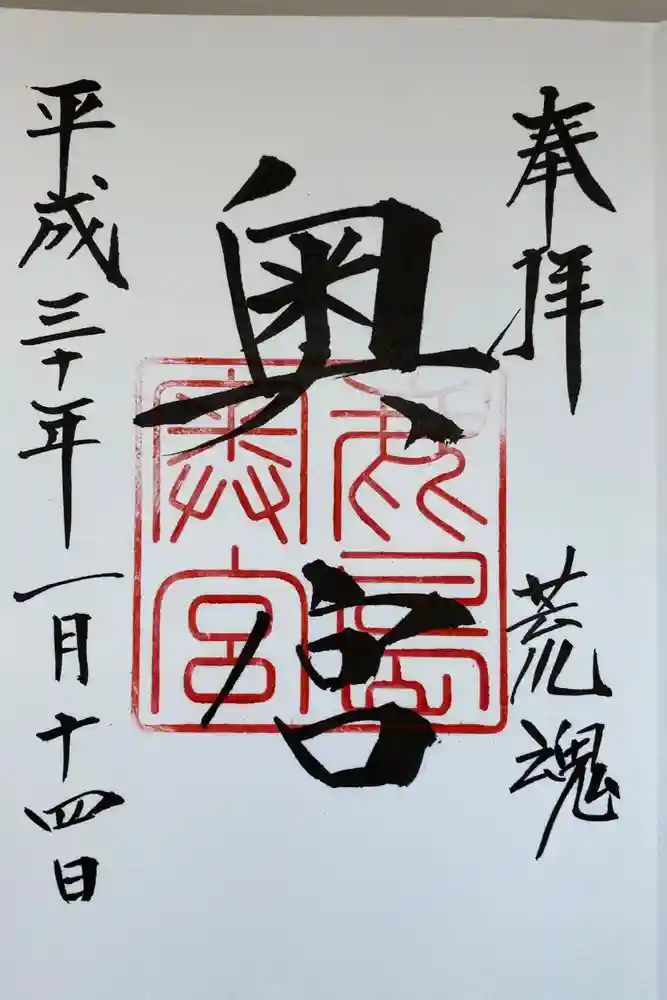 奉拝
荒魂
奥宮
平成三十年一月十四日